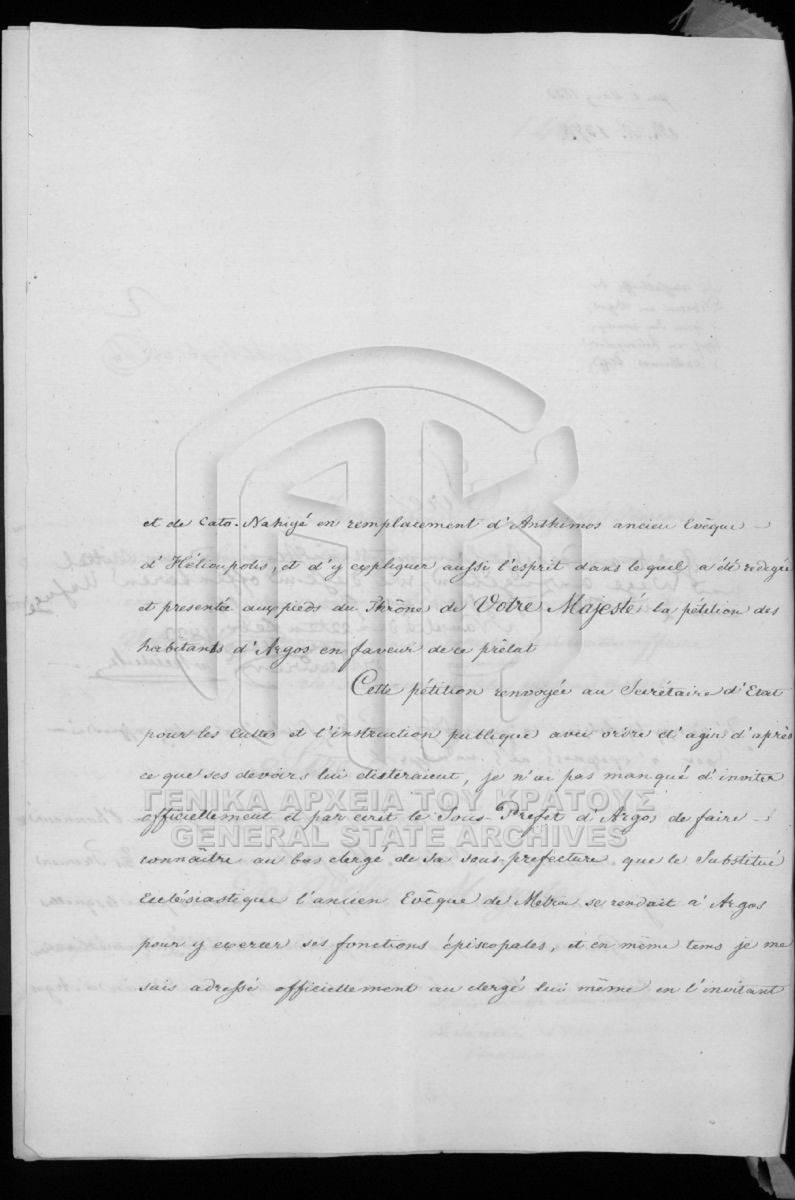 et de Cato-Nahigé en remplacement d'Anthimos ancien Evêque
d'Hélioupolis, et d'y expliquer aussi l'esprit dans le quel a été redegée
et presentée aux pieds du Thrône de Votre Majesté la pétition des
habitants d'Argos en faveur de ce prélat
Cette pétition renvoyée au Secrétaire d'Etat
pour les Cultes et l'instruction publique avec ordre d'agir d'après
ce que ses devoirs lui dicteraient, je n'ai pas manqué d'inviter
ΓΕΝΙΚΑ ΑΡΧΕΙΑ ΤΟΥ ΚΡΑΤΟΥΣ
officiellement et par ecrit le Sous-Prefet d'Argos de faire
GENERAL STATE ARCHIVES
connaître au bas clergé de sa sous-prefecture que le Substitué
Ecclésiastique l'ancien Evêque de se rendait à Argos
pour y exercer ses fonctions épiscopales, et en même tems je me
suis adressé officiellement au clergé lui même en l'invitant